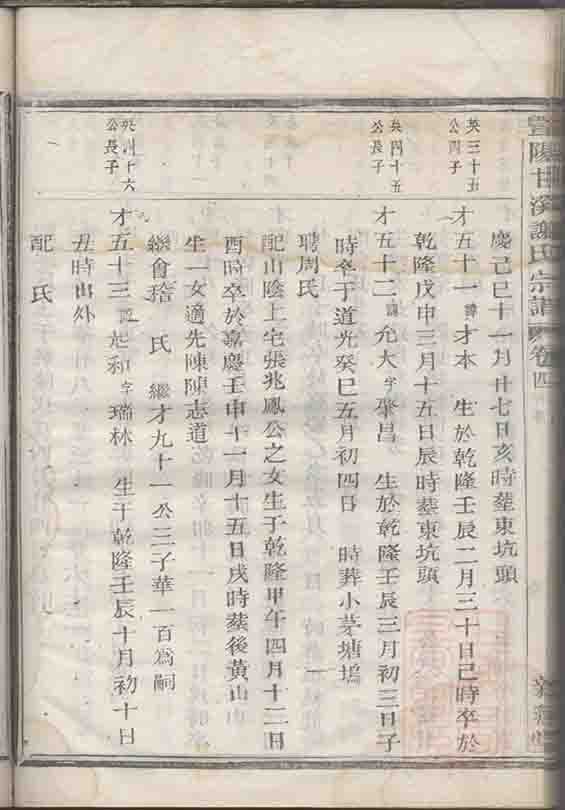 暨陽甘溪謝氏宗譜 卷四
慶己巳十一月廿七日亥時塟東坑頭
英三十五
公四子
才五十一 諱才本 生於乾隆壬辰二月三十日巳時卒於
乾隆戊申三月十五日辰時塟東坑頭
英四十五
公長子
才五十二 諱允大 字肇昌 生於乾隆壬辰三月初三日子
時卒于道光癸巳五月初四日 時葬小茅塘塢
聘周氏
配山陰上宅張兆鳳公之女生于乾隆甲午四月十二日
酉時卒於嘉慶壬申十一月十五日戌時塟後黃山
生一女適先陳陳志道
繼會稽 氏 繼才九十一公三子華一百為嗣
英四十六
公長子
才五十三 諱 和 字瑞林 生于乾隆壬辰十月初十日
丑時出外
配 氏